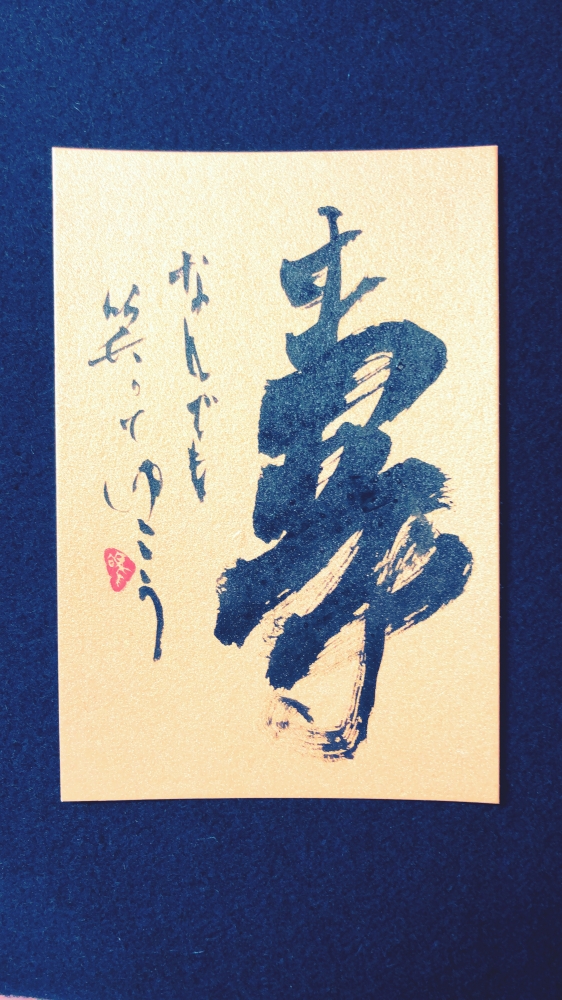 寿
なんでも
笑って
ゆこう